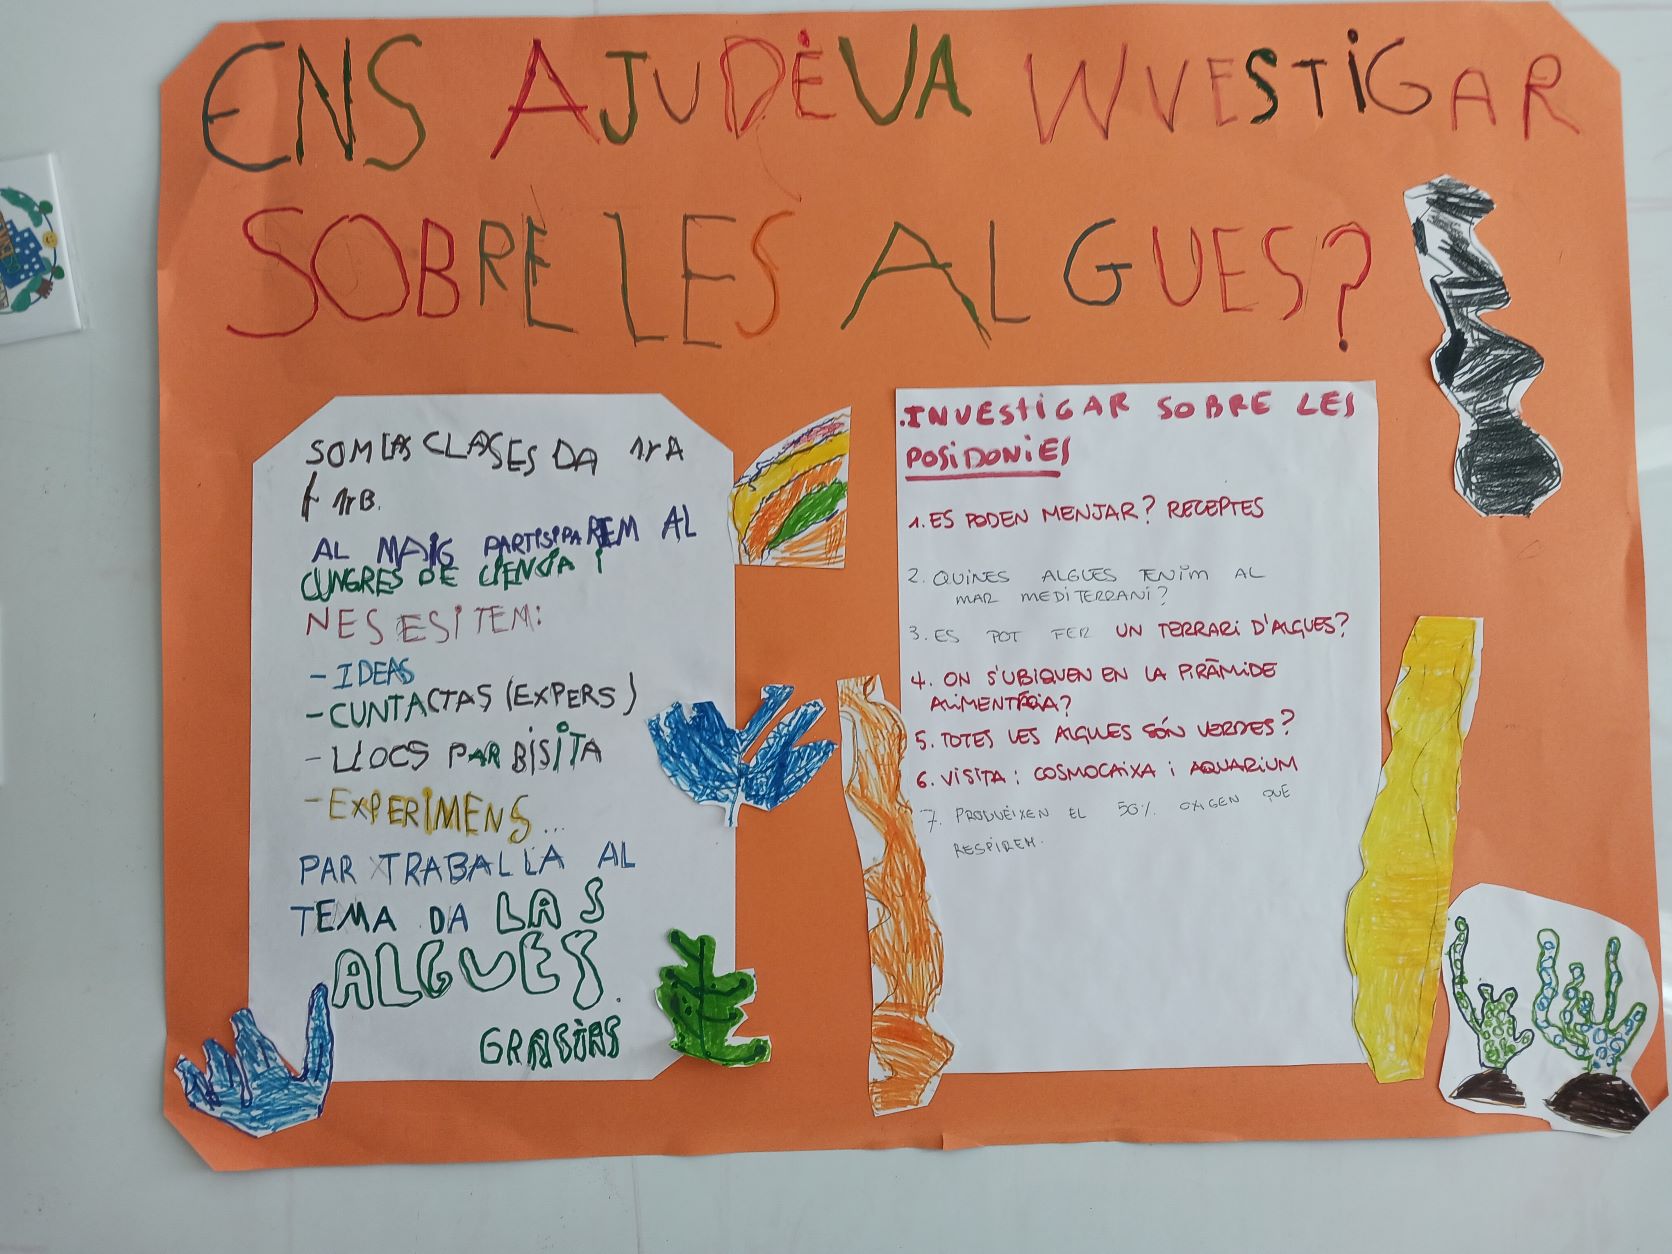 ENS AJUDÈU A INVESTIGAR
SOBRE LES ALGUES?
SOM LAS CLASES DA 1r A
I 1r B.
AL MAIG PARTISIPAREM AL
CUNGRES DE CIENCIA I
NESESITEM:
- IDEAS
- CUNTACTAS (EXPERS)
- LLOCS PAR BISITA
- EXPERIMENS...
PAR TRABALLA AL
TEMA DA LAS
ALGUES.
GRASIAS
. INVESTIGAR SOBRE LES
POSIDONIES
1. ES PODEN MENJAR? RECEPTES
2. QUINES ALGUES TENIM AL
MAR MEDITERRANI?
3. ES POT FER UN TERRARI D'ALGUES?
4. ON S'UBIQUEN EN LA PIRÀMIDE
ALIMENTÀRIA?
5. TOTES LES ALGUES SÓN VERDES?
6. VISITA: COSMOCAIXA I AQUARIUM
7. PRODUÈIXEN EL 50% OXIGEN QUE
RESPIREM.